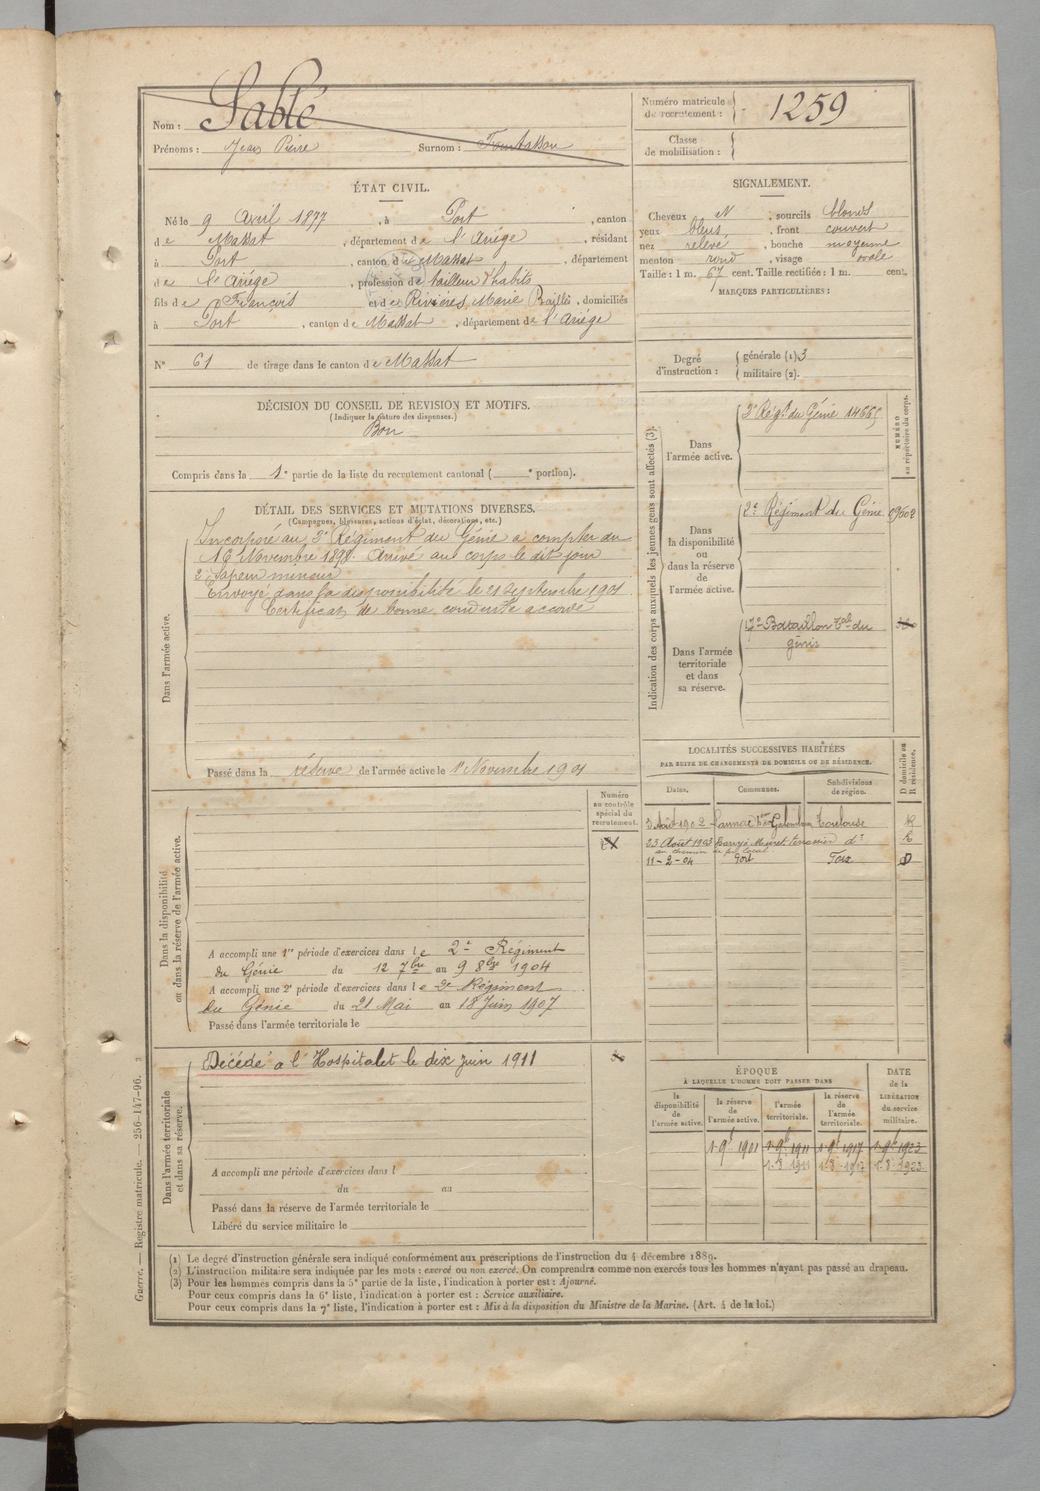 Nom : Sablé
Prénoms : Jean Pierre Surnom :
Numéro matricule de recrutement : 1259
Classe de mobilisation :
ÉTAT CIVIL.
Né le 9 Avril 1877, à Port, canton
de Massat, département de l'Ariége, résidant
à Port, canton de Massat, département
de l'Ariége, profession de tailleur d'habits
fils de François et de Rivières, Marie, domiciliés
à Port, canton de Massat, département de l'Ariége
N° 61 de tirage dans le canton de Massat
SIGNALEMENT.
Cheveux N, sourcils blonds
yeux bleus, front couvert
nez relevé, bouche moyenne
menton rond, visage ovale
Taille : 1 m. 67 cent. Taille rectifiée : 1 m. cent.
MARQUES PARTICULIÈRES :
Degré d'instruction : générale (1) 3
militaire (2).
DÉCISION DU CONSEIL DE REVISION ET MOTIFS.
(Indiquer la nature des dispenses.)
Bon
Compris dans la 1e partie de la liste du recrutement cantonal ( e portion).
DÉTAIL DES SERVICES ET MUTATIONS DIVERSES.
(Campagnes, blessures, actions d'éclat, décorations, etc.)
Dans l'armée active.
Incorporé au 3e Régiment du Génie à compter du
16 Novembre 1898. Arrivé au corps le dit jour
2e Sapeur mineur
Envoyé dans la disponibilité le 21 Septembre 1901
Certificat de bonne conduite accordé
Passé dans la réserve de l'armée active le 1er Novembre 1901
Indication des corps auxquels les jeunes gens sont affectés (3).
NUMÉRO au répertoire du corps.
Dans l'armée active.
3e Régt du Génie 14665
Dans la disponibilité ou dans la réserve de l'armée active.
2e Régiment du Génie
Dans l'armée territoriale et dans sa réserve.
17e Bataillon Tal du
génie
LOCALITÉS SUCCESSIVES HABITÉES
PAR SUITE DE CHANGEMENTS DE DOMICILE OU DE RÉSIDENCE.
Dates. Communes. Subdivisions de région. D domicile ou R résidence.
3 Août 1902 Toulouse R
23 Août 1903 do R
11-2-04 Port Foix D
Dans la disponibilité ou dans la réserve de l'armée active.
Numéro au contrôle spécial du recrutement.
A accompli une 1re période d'exercices dans le 2e Régiment
du Génie du 12 7bre au 9 8bre 1904
A accompli une 2e période d'exercices dans le 2e Régiment
du Génie du 21 Mai au 18 Juin 1907
Passé dans l'armée territoriale le
Dans l'armée territoriale et dans sa réserve.
Décédé à l'Hospitalet le dix juin 1911
A accompli une période d'exercices dans l
du au
Passé dans la réserve de l'armée territoriale le
Libéré du service militaire le
ÉPOQUE
À LAQUELLE L'HOMME DOIT PASSER DANS
la disponibilité de l'armée active. la réserve de l'armée active. l'armée territoriale. la réserve de l'armée territoriale. DATE de la LIBÉRATION du service militaire.
1-9b 1901 1-9b 1911 1-9b 1917 1-9b 1923
1-8 1911 1-8 1917 1-8 1923
(1) Le degré d'instruction générale sera indiqué conformément aux prescriptions de l'instruction du 4 décembre 1889.
(2) L'instruction militaire sera indiquée par les mots : exercé ou non exercé. On comprendra comme non exercés tous les hommes n'ayant pas passé au drapeau.
(3) Pour les hommes compris dans la 5e partie de la liste, l'indication à porter est : Ajourné.
Pour ceux compris dans la 6e liste, l'indication à porter est : Service auxiliaire.
Pour ceux compris dans la 7e liste, l'indication à porter est : Mis à la disposition du Ministre de la Marine. (Art. 4 de la loi.)
Guerre. — Registre matricule. — 256-147-96. 3